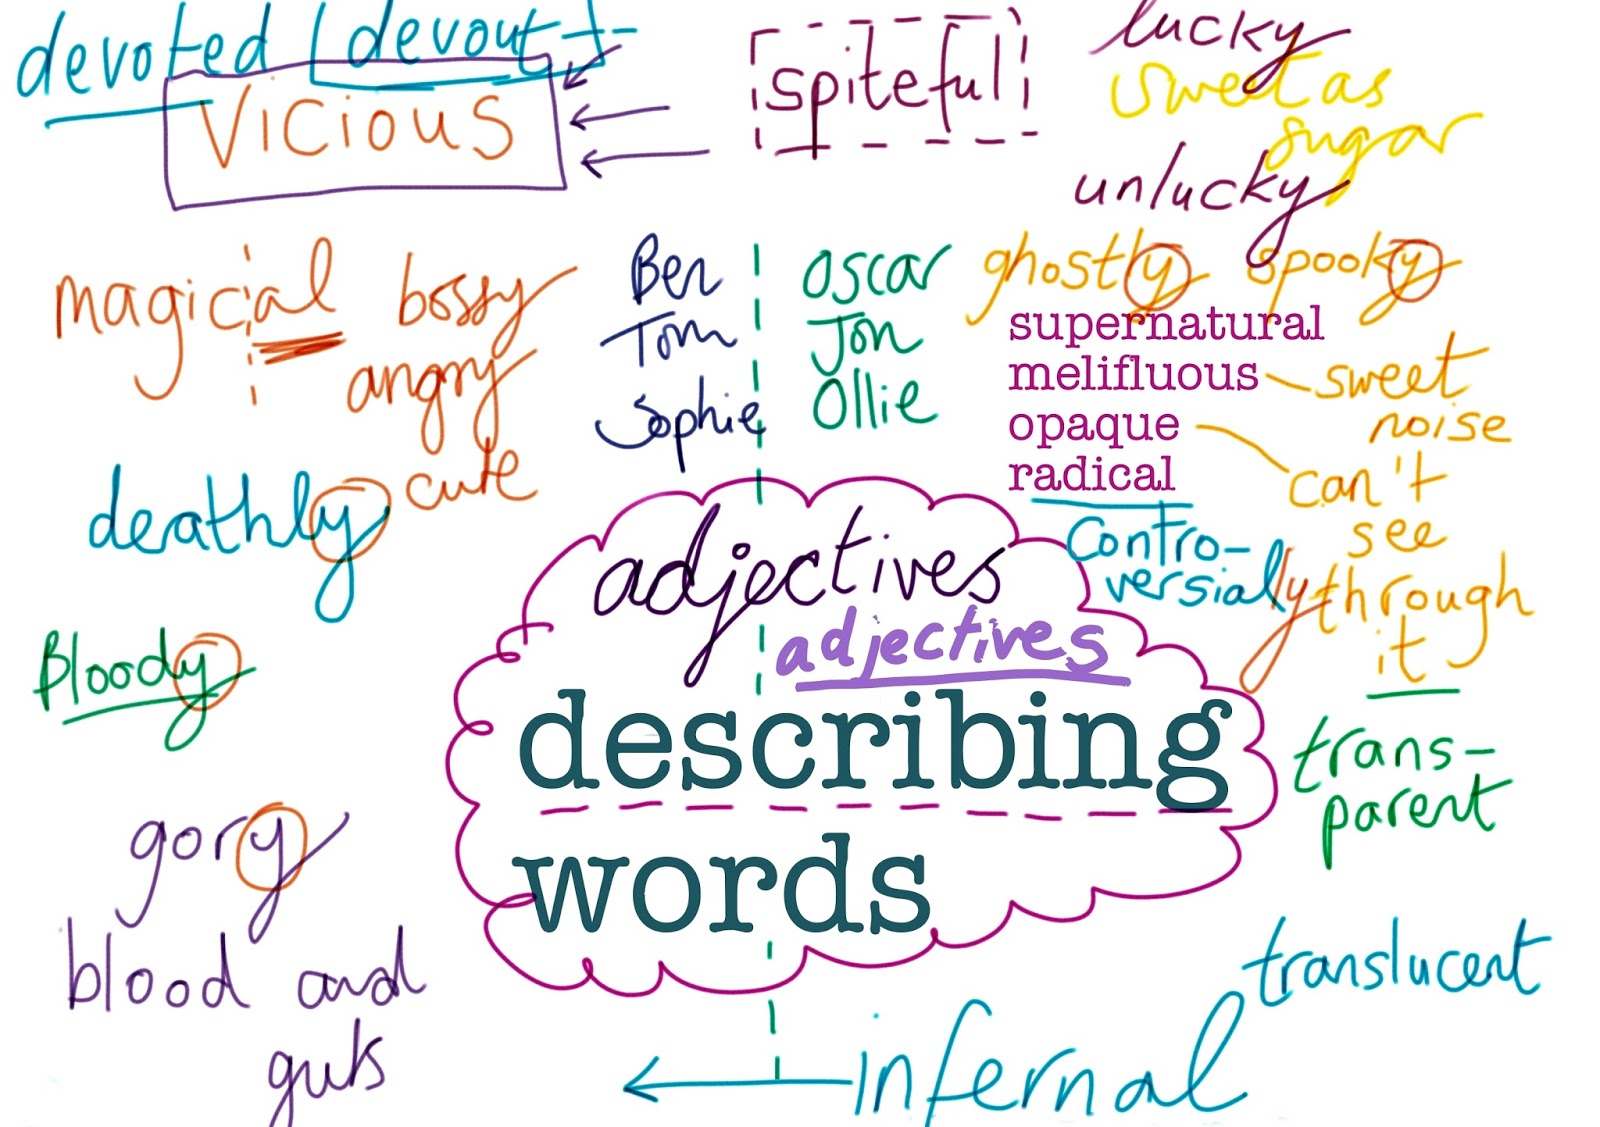 devoted (devout)
vicious
spiteful
lucky
sweet as
sugar
unlucky
magical
bossy
angry
cute
Ben
Tom
Sophie
Oscar
Jon
Ollie
ghostly spooky
supernatural
melifluous
opaque
radical
sweet
noise
can't
see
through
it
contro-
versially
deathly
adjectives
adjectives
describing
words
Bloody
trans-
parent
gory
blood and
guts
translucent
infernal